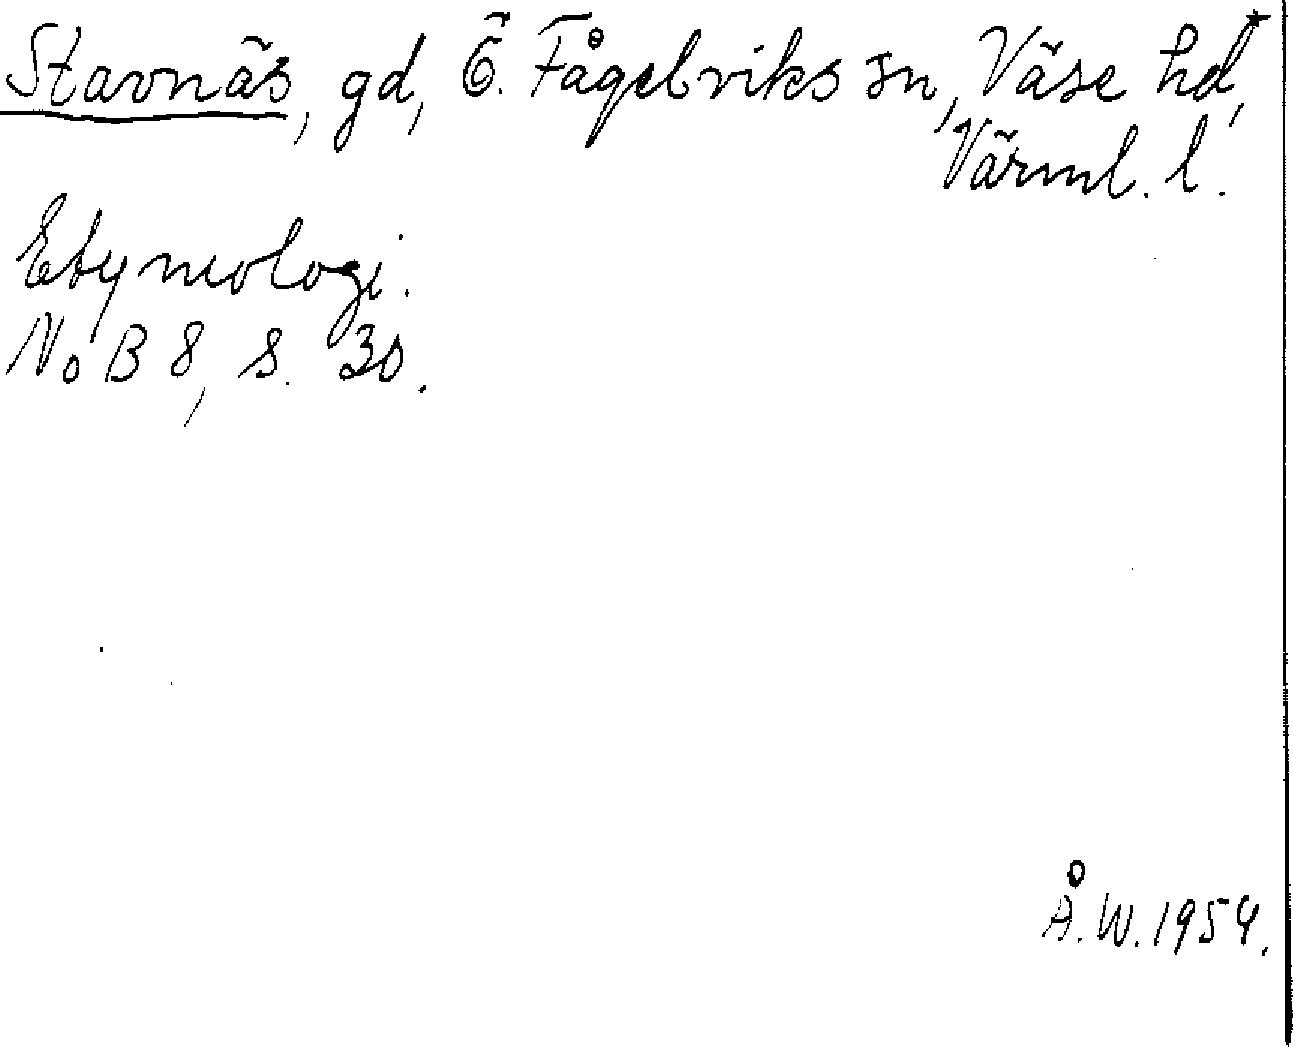 Stavnäs, gd, Ö. Fågelviks sn, Väse hd,
Värml. l.
Etymologi.
NoB 8, s. 30.
Å.W. 1954.